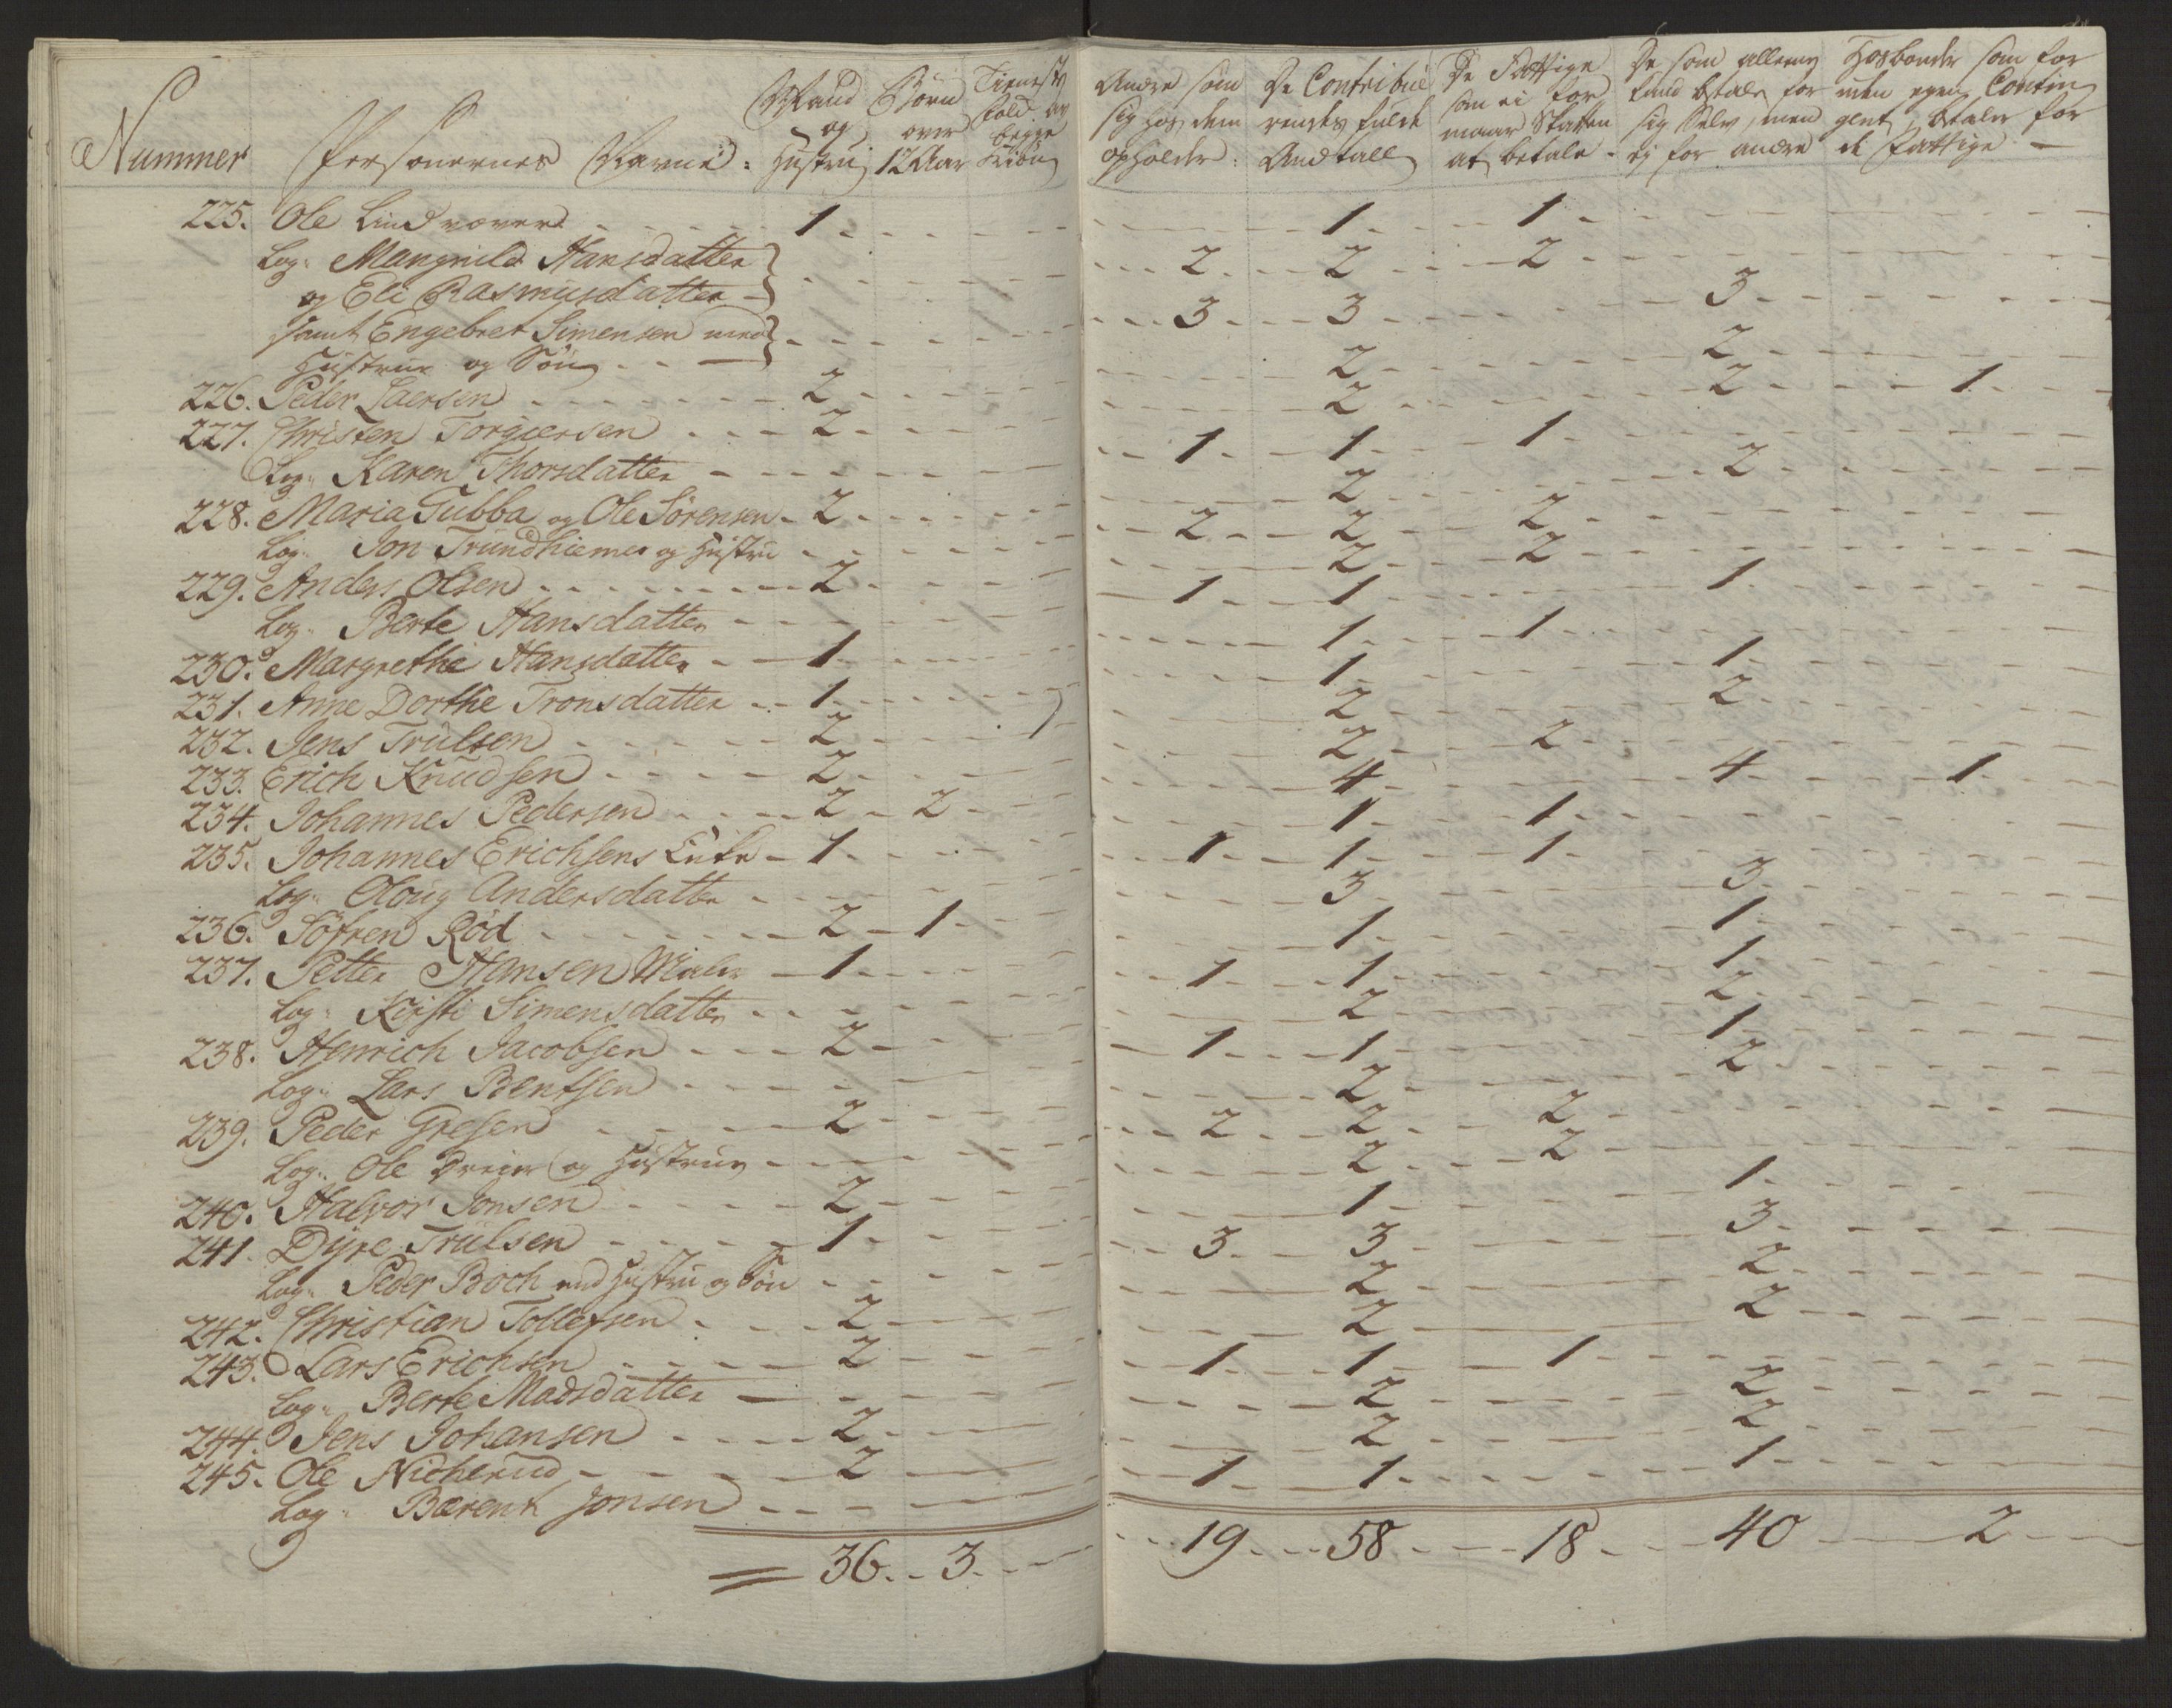 Nummer Personernes Navne: Mand og Hustru Börn over 12 Aar Tieneste Folk af begge Kiön Andre som sig hos dem opholder: De Contribuerendes fulde Andtall De Fattige som ei formaar Skatten at betale. De som alleene kand betale for sig Selv, men ej for andre Hosbonder som for uden egen Contingent, betaler for de Fattige
225. Ole Lindvæver 1 1 1
Log: Mangnild Hansdatter
og Eli Rasmusdatter 2 2 2
samt Engebret Simensen med
Hustrue og Sön 3 3 3
226. Peder Laersen 2 2 2
227. Christen Torgiersen 2 2 2 1
Log: Karen Thorsdatter 1 1 1
228. Maria Tubba og Ole Sörensen 2 2 2
Log: Jon Trundhiemer og Hustru 2 2 2
229. Anders Olsen 2 2 2
Log: Berte Hansdatter 1 1 1
230. Margrethe Hansdatter 1 1 1
231. Anne Dorthe Tronsdatter 1 1 1
232. Jens Trulsen 2 2 2
233. Erich Knudsen 2 2 2
234. Johannes Pedersen 2 2 4 4 1
235. Johannes Erichsens Enke 1 1 1
Log: Aloug Andersdatter 1 1 1
236. Söfren Röd 2 1 3 3
237. Petter Hansen Maler 1 1 1
Log: Kirsti Simensdatter 1 1 1
238. Henrich Jacobsen 2 2 2
Log: Lars Bentsen 1 1 1
239. Peder Gresen 2 2 2
Log: Ole Dreier og Hustrue 2 2 2
240. Halvor Jonsen 2 2 2
241. Dyre Trulsen 1 1 1
Log: Peder Boch med Hustru og Sön 3 3 3
242. Christian Tollefsen 2 2 2
243. Lars Erichsen 2 2 2
Log: Berte Madsdatter 1 1 1
244. Jens Johansen 2 2 2
245. Ole Nicherud 2 2 2
Log: Bærent Jonsen 1 1 1
36 3 19 58 18 40 2